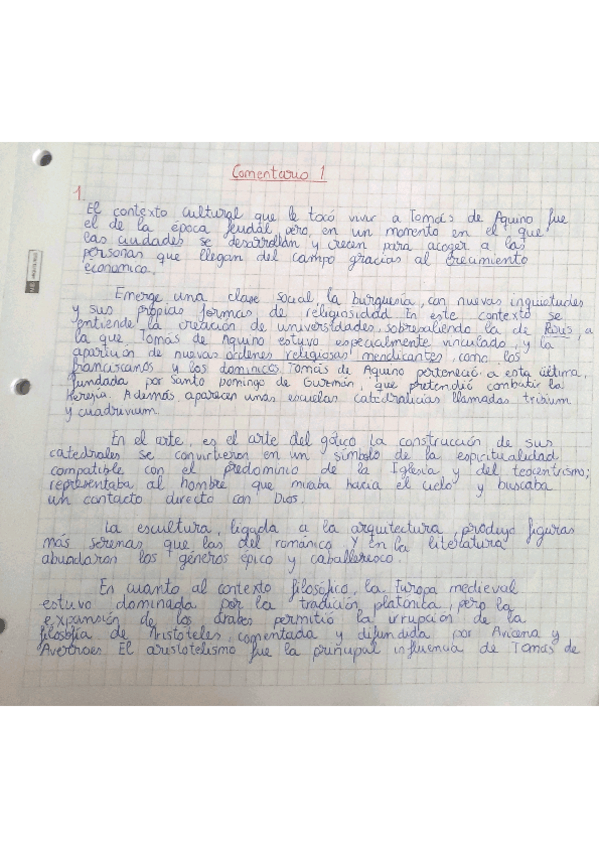 Comentario 1
1.
El contexto cultural que le tocó vivir a Tomás de Aquino fue
el de la época feudal pero, en un momento en el que
las ciudades se desarrollan y crecen para acoger a las
personas que llegan del campo gracias al crecimiento
económico.
Emerge una clase social, la burguesía, con nuevas inquietudes
y sus propias formas de religiosidad. En este contexto se
entiende la creación de universidades, sobresaliendo la de París, a
la que, Tomás de Aquino estuvo especialmente vinculado, y la
aparición de nuevas órdenes religiosas mendicantes, como los
franciscanos y los dominicos. Tomás de Aquino perteneció a esta última,
fundada por Santo Domingo de Guzmán, que pretendió combatir la
herejía. Además aparecen unas escuelas catedralicias llamadas tribium
y cuadrivium.
En el arte, es el arte del gótico la construcción de sus
catedrales se convirtieron en un símbolo de la espiritualidad
compatible con el predominio de la Iglesia y del teocentrismo;
representaba al hombre que miraba hacia el cielo y buscaba
un contacto directo con Dios.
La escultura, ligada a la arquitectura, produjo figuras
más serenas que las del románico. Y en la literatura
abundaron los géneros épico y caballeresco.
En cuanto al contexto filosófico, la Europa medieval
estuvo dominada por la tradición platónica, pero la
expansión de los árabes permitió la irrupción de la
filosofía de Aristóteles, comentada y difundida por Avicena y
Averroes. El aristotelismo fue la principal influencia de Tomás de